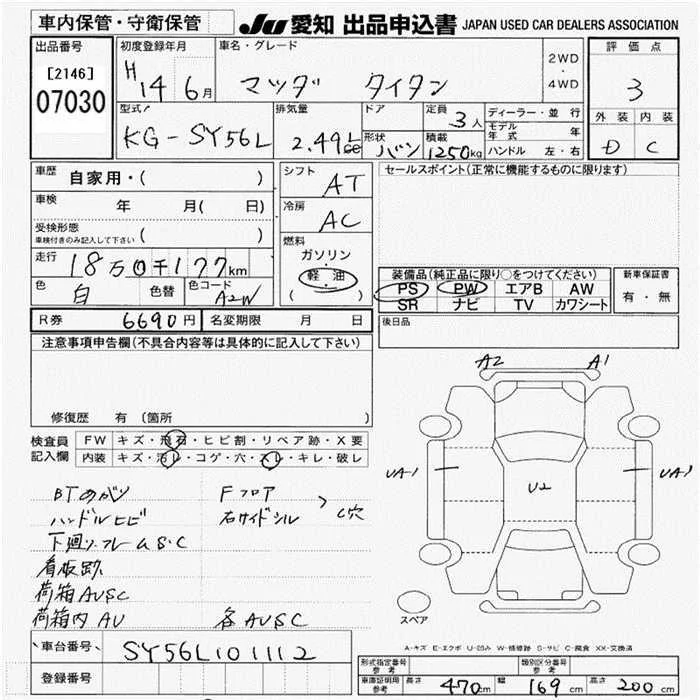 車内保管・守衛保管
JU 愛知 出品申込書 JAPAN USED CAR DEALERS ASSOCIATION
出品番号
[2146]
07030
初度登録年月
H 14 6月
車名・グレード
マツダ タイタン
2WD
・
4WD
評価点
3
型式
KG-SY56L
排気量
2.49L
cc
ドア
形状 バン
定員
3人
積載
1250kg
ディーラー・並行
モデル年式 年
ハンドル 左・右
外装 内装
D C
車歴 自家用・( )
車検 年 月( 日)
受検形態
車検付きのみ記入して下さい ( )
走行 18万0千177km
色 白 色替 色コード A2W
シフト AT
冷房 AC
燃料
ガソリン
軽油
( )
セールスポイント(正常に機能するものに限ります)
装備品(純正品に限り○をつけてください)
PS PW エアB AW
SR ナビ TV カワシート
新車保証書
有・無
R券 6690円 名変期限 月 日
後日品
注意事項申告欄(不具合内容等は具体的に記入して下さい)
修復歴 有 (箇所
検査員記入欄
FW キズ・飛石・ヒビ割・リペア跡・X要
内装 キズ・汚レ・コゲ・穴・スレ・キレ・破レ
BTあがり Fフロア
ハンドルヒビ 右サイドシル C穴
下廻り・フレームS・C
看板跡
荷箱AUSC
荷箱内AU 各AUSC
A2 A1
UA-1 U2 UA-1
スペア
A-キズ E-エクボ U-凹み W-補修跡 S-サビ C-腐食 XX-交換済
車台番号 SY56L101112
登録番号
形式指定番号
参考
類別区分番号
参考
車庫証明用
参考
長さ 470cm 幅 169cm 高さ 200cm